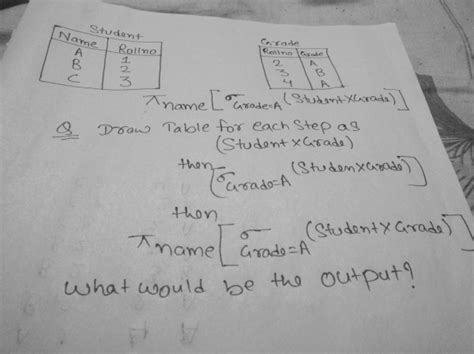 Student
Name Rollno
A 1
B 2
C 3
Grade
Rollno Grade
2 A
3 B
4 A
π name [σ Grade=A (Student X Grade)]
Q Draw Table for each Step as
(Student X Grade)
then
[σ Grade=A (Studen X Grade)]
then
π name [σ Grade=A (Student X Grade)]
What would be the output?